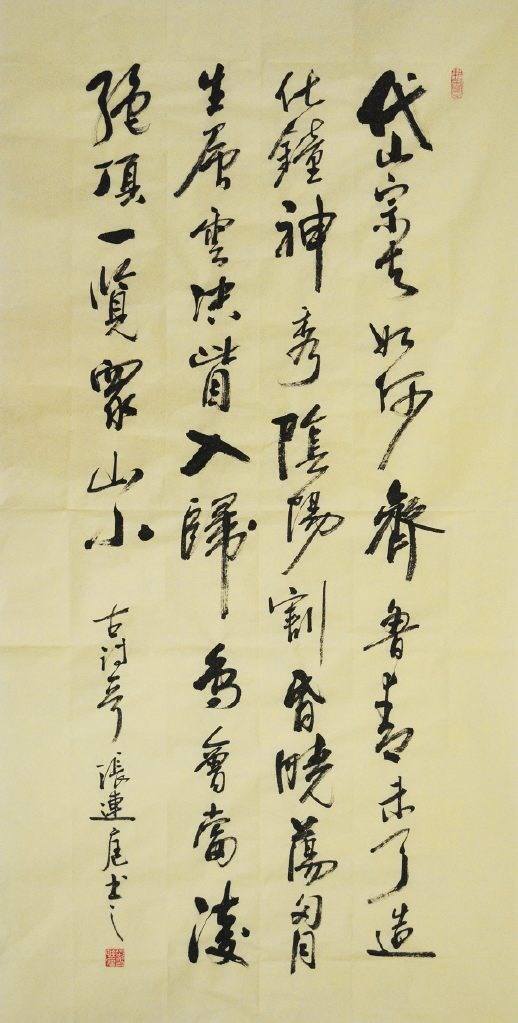 岱宗夫如何齊魯青未了造
化鐘神秀陰陽割昏曉蕩胷
生層雲決眥入歸鳥會當凌
絕頂一覽眾山小
古詩 張連庭书之